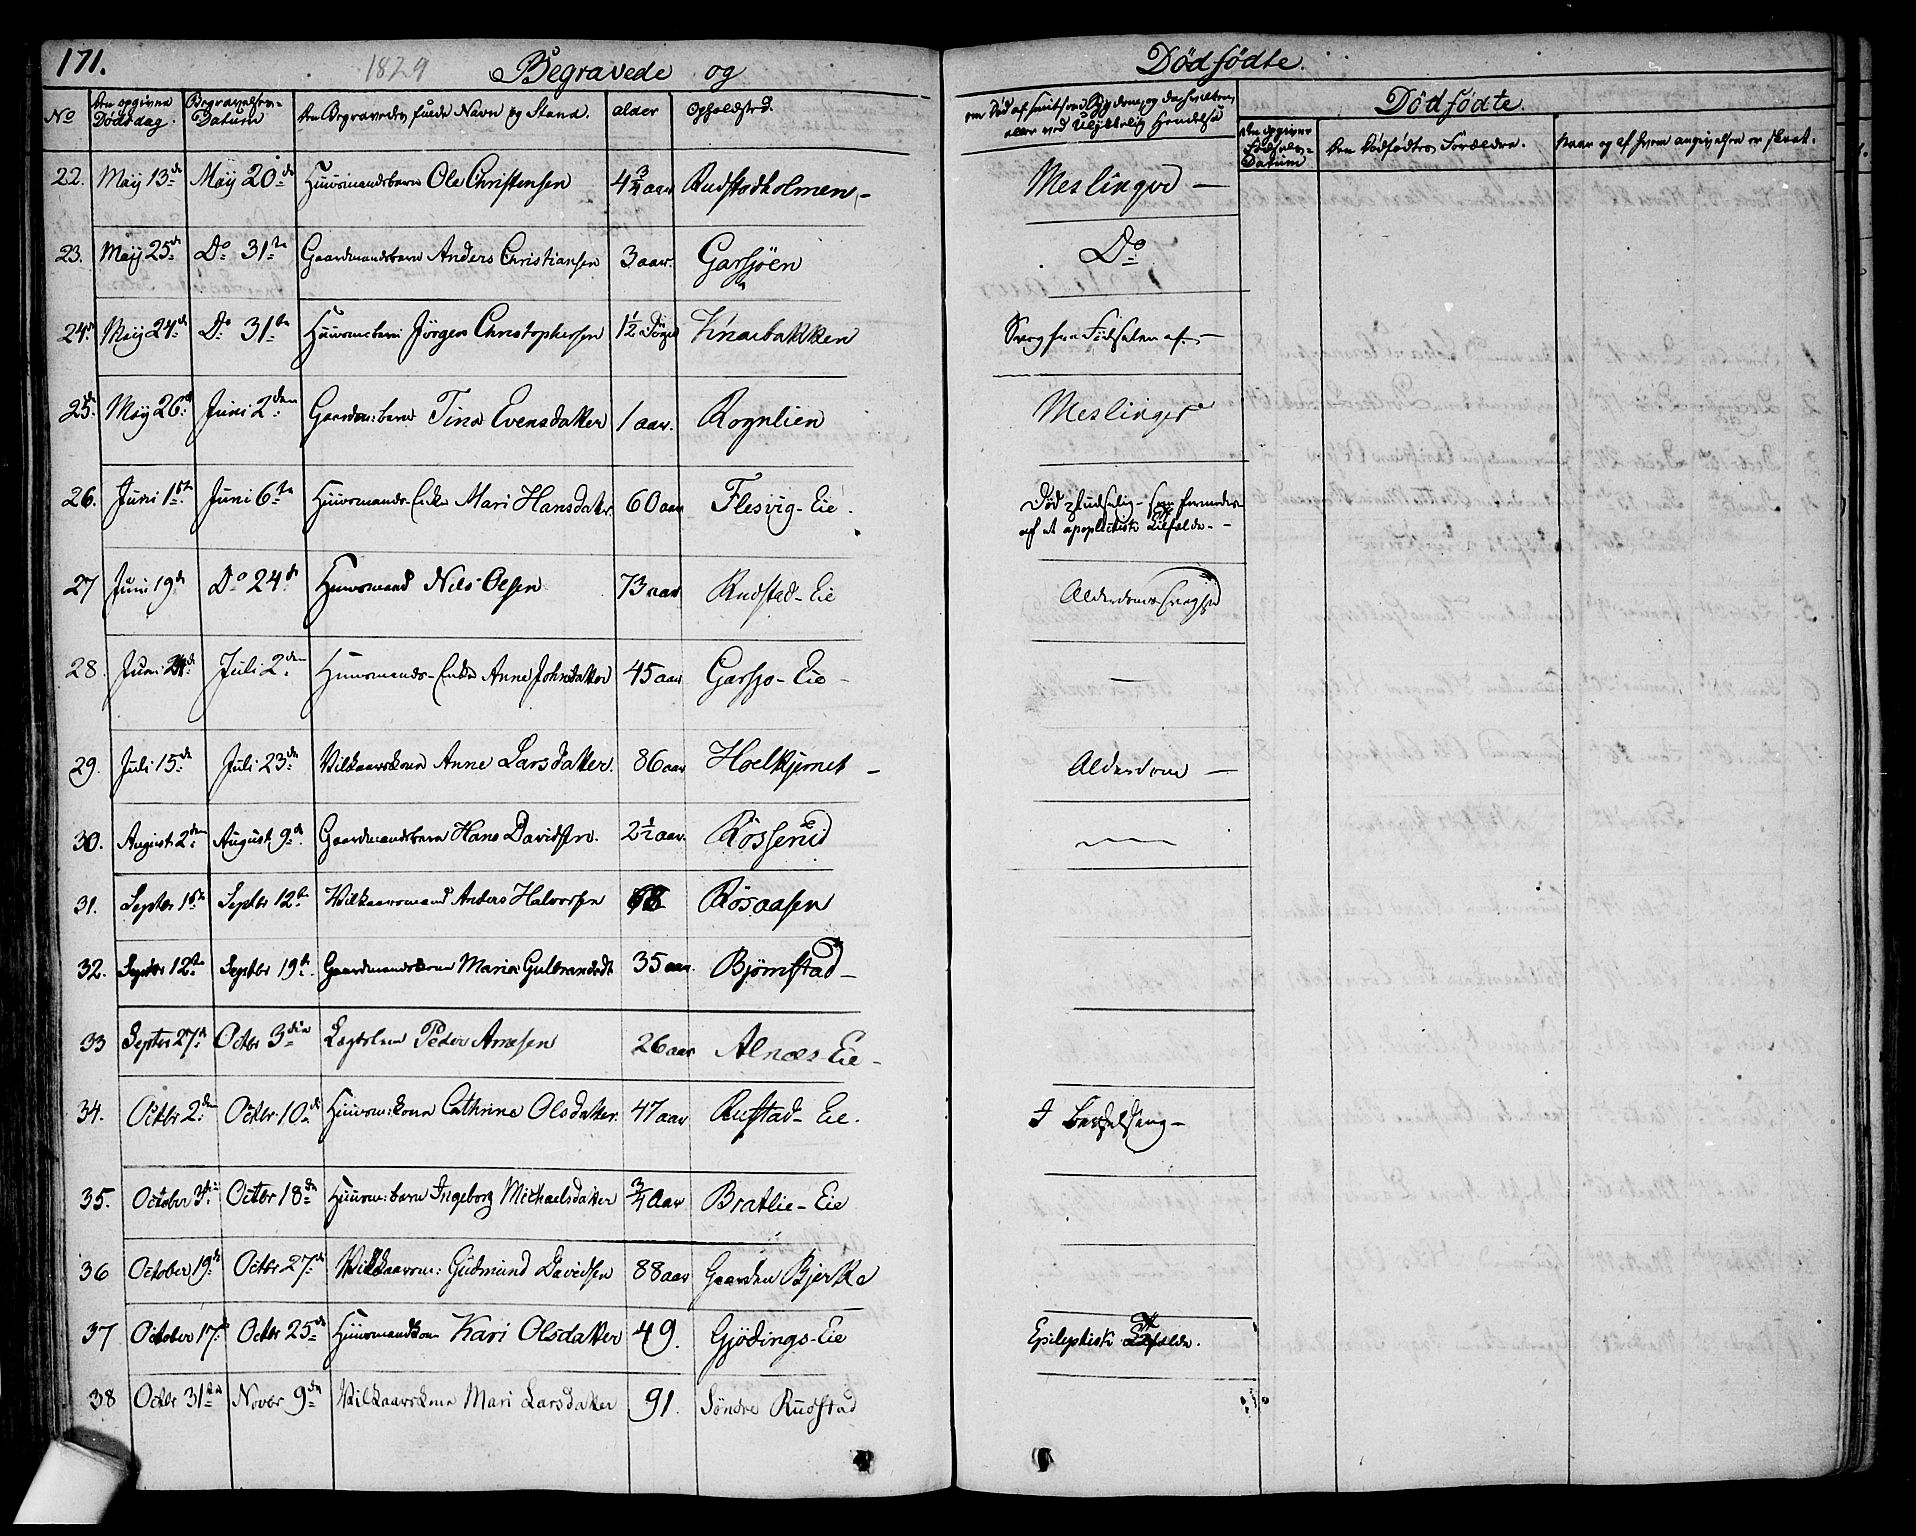 171.
1829
Begravede og
Dödfödte.
No
Den opgivne Dödsdag.
Begravelses-Datum
Den Begravedes fulde Navn og Stand.
alder
Opholdsted.
om Död af smitsom Sygdom, og da hvilken, eller ved Ulykkelig Hendelse
Dödfödte
Den opgivne Födsels-Datum
Den Dödfödtes Forældre.
Naar og af hvem angivelsen er skeet.
22. Maÿ 13de Maÿ 20de Huusmandsbarn Ole Christensen 4 3/4 aar Rudstadholmen - Meslinger -
23. Maÿ 25de Do 31te Gaardmandsbarn Anders Christiansen 3 aar. Garsjöen Do
24. Maÿ 24de Do 31te Huusm: barn Jörgen Christophersen 1 1/2 Knaebakken Svag fra Födselen af. -
25. Maÿ 26de Juni 2den Gaardm: barn Tina Evensdatter 1 aar. Rognlien Meslinger
26. Juni 1ste Juni 6te Huusmands-Enke Mari Hansdatter 60 aar Flesvig-Eie. Död pludselig - som formodes
af et apoplectisk Tilfælde. -
27 Juni 19de Do 24de Huusmand Nils Olsen 73 aar Rudstad-Eie Alderdomssvaghed
28. Juni 24de Juli 2den Huusmands-Enke Anne Johnsdatter 45 aar Garsjo-Eie - -
29. Juli 15de Juli 23de Vilkaarskone Anne Larsdatter. 86 aar Hoelkjernet - Alderdom -
30. August 2den August 9de Gaardmandsbarn Hans Davidsen. 2 1/2 aar. Rösserud
31. Septbr 1ste Septbr 12te Vilkaarsmand Anders Halvorsen 68 Rösaasen
32. Septbr 12te Septbr 19de Gaardmandskone Maria Gulbrandsdt 35 aar. Björnstad -
33 Septbr 27de Octbr 3die Lægdslem Peder Arnesen 26 aar Alnæs-Eie -
34. Octbr 2den Octbr 10de Huusm: kone Cathrine Olsdatter. 47 aar Rustad-Eie. I Barselseng -
35. October 3die Octbr 18de Huusm: barn Ingeborg Michaelsdatter 3/4 Aar Bratlie-Eie
36 October 19de Octbr 27de Vilkaarsm: Gudmund Davidsen 88 aar Gaarden Bjerke
37 October 17de Octbr 25de Huusmandkone Kari Olsdatter 49. Gjödings-Eie Epileptisk Tilfælde.
38 Octbr 31te Novbr 9de Vilkaarskone Mari Larsdatter 91. Söndre Rudstad